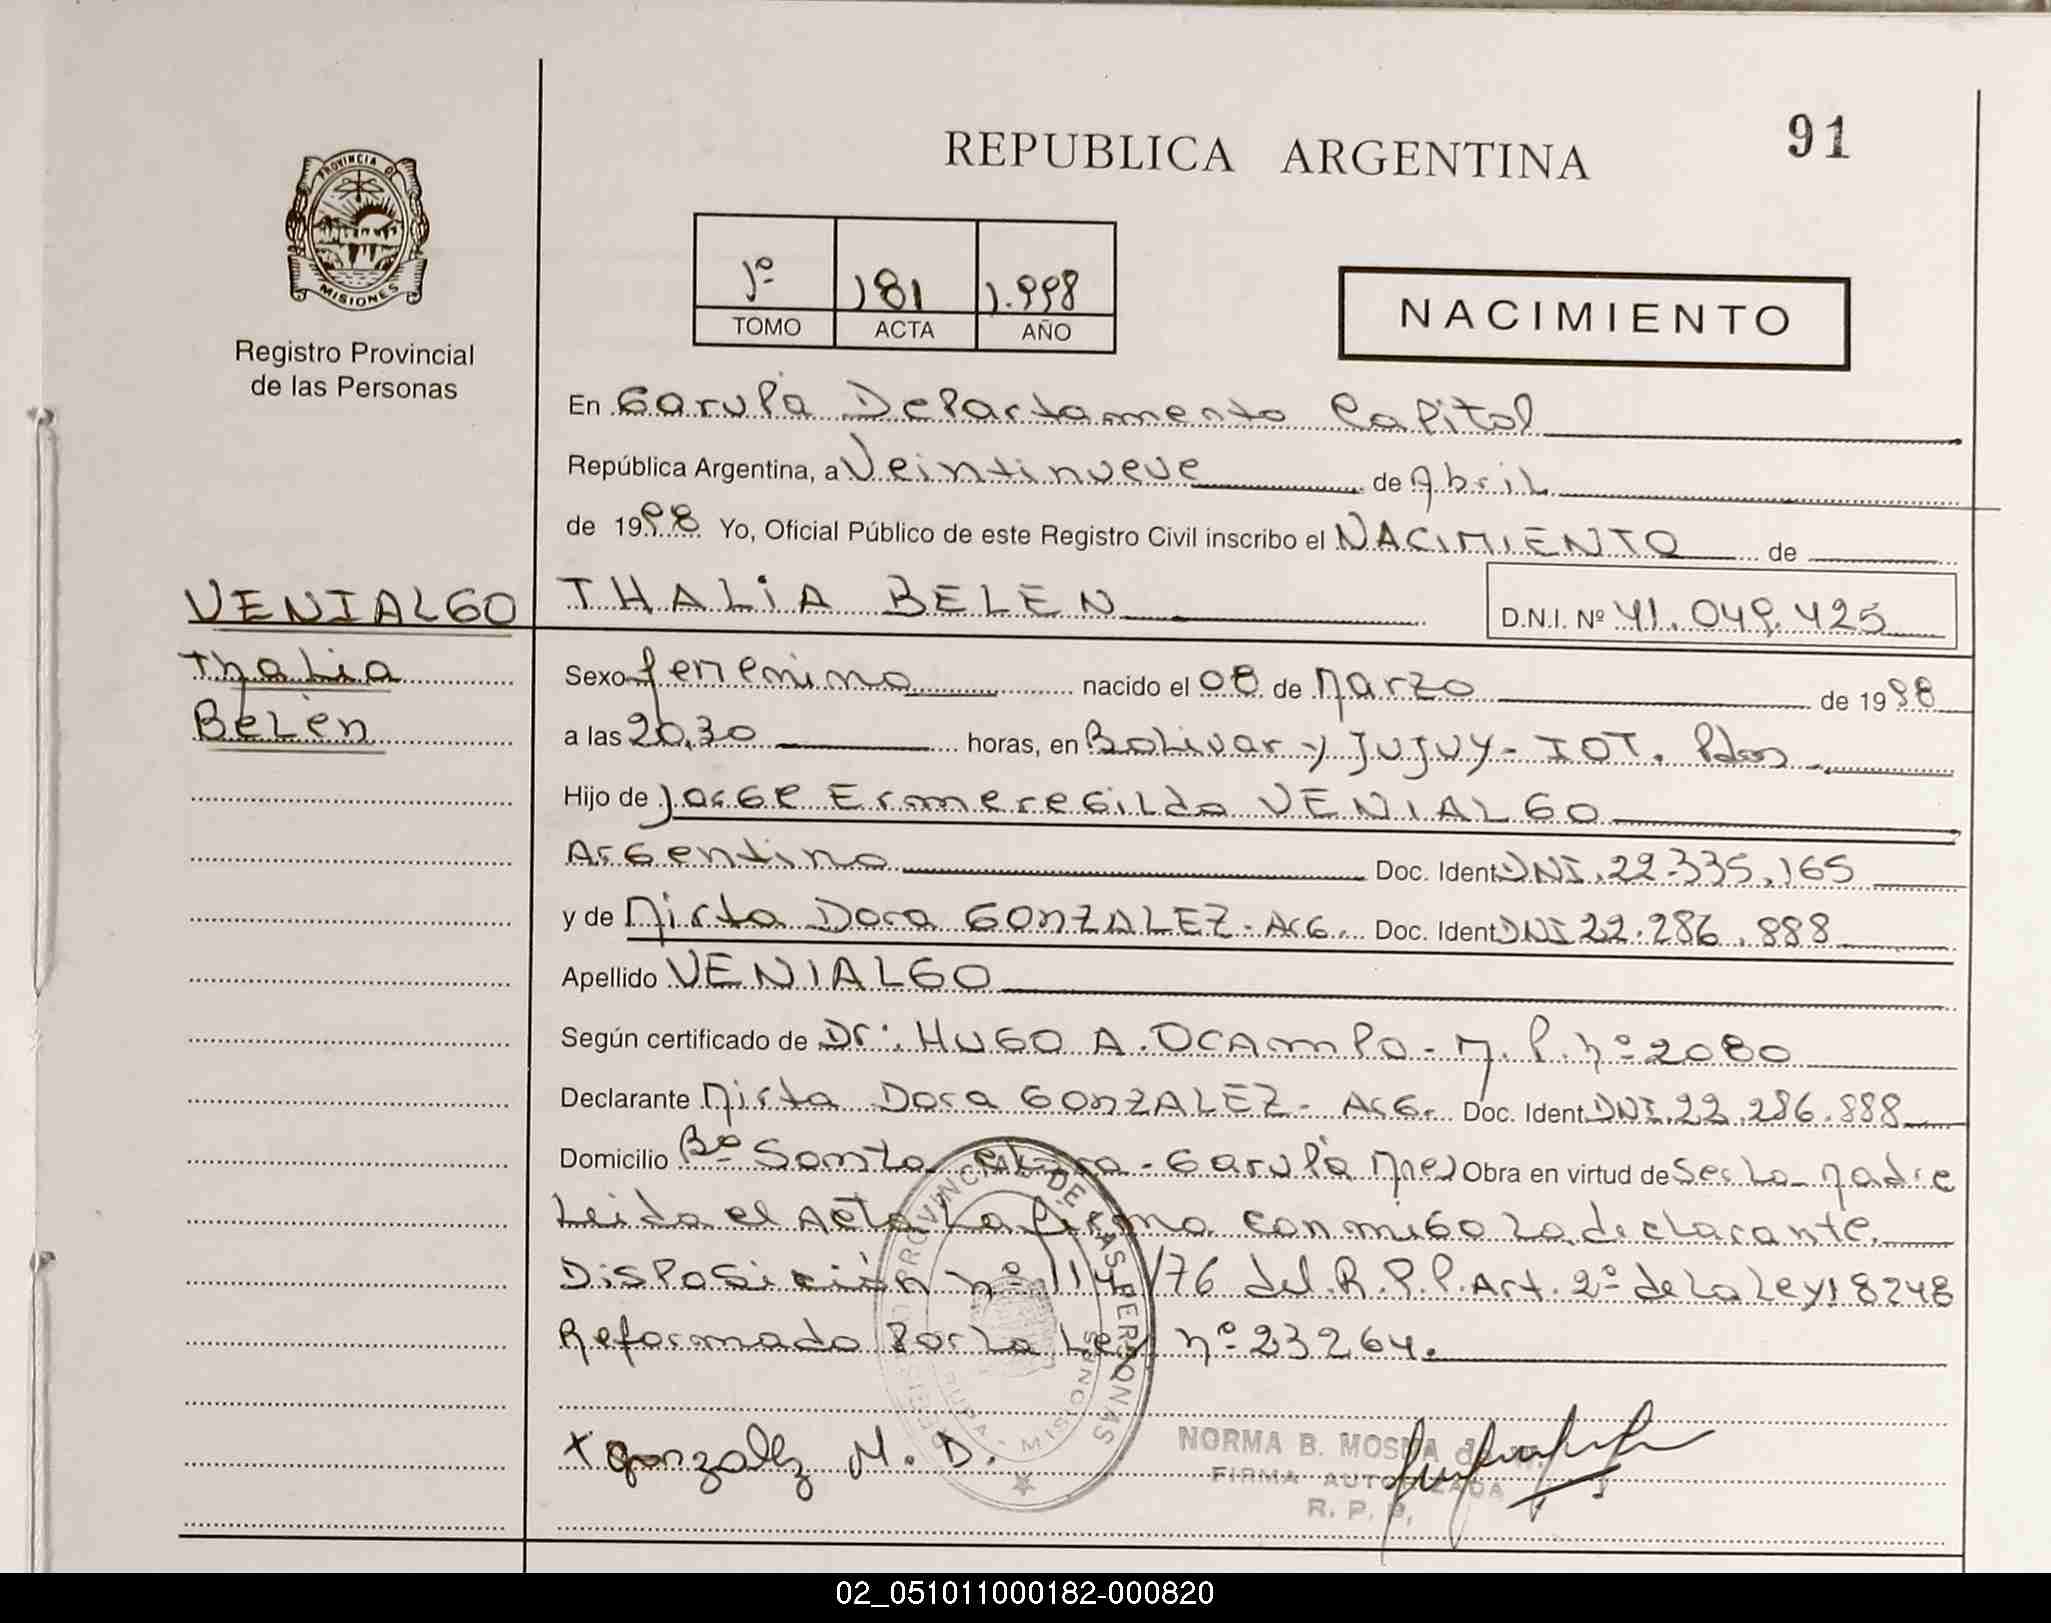 REPUBLICA ARGENTINA
91
PROVINCIA D
MISIONES
Registro Provincial
de las Personas
1º 181 1.998
TOMO ACTA AÑO
NACIMIENTO
En Garupá Departamento Capital
República Argentina, a Veintinueve de Abril
de 1998 Yo, Oficial Público de este Registro Civil inscribo el NACIMIENTO de
VENIALGO
Thalia
Belén
THALIA BELEN D.N.I. Nº 41.049.425
Sexo femenino nacido el 08 de Marzo de 1998
a las 20,30 horas, en Bolivar y Jujuy- IOT. Pdas
Hijo de Jorge Ermeregildo VENIALGO
Argentino Doc. Ident DNI.22.335.165
y de Mirta Dora GONZALEZ- Arg. Doc. Ident DNI 22.286.888
Apellido VENIALGO
Según certificado de Dr: HUGO A. OCAMPO- M.P.nº 2080
Declarante Mirta Dora GONZALEZ- Arg. Doc. Ident. DNI.22.286.888
Domicilio Bº Santa Clara- Garupá Mnes Obra en virtud de Ser la madre
Leida el Acta la firma conmigo la declarante.
Disposición nº 114/76 del R.P.P. Art. 2º de la Ley 18248
Reformado Por la Ley nº 23264.
PROVINCIAL DE LAS PERSONAS
MISIONES
x Gonzalez M. D.
NORMA B.
FIRMA AUTORIZADA
R. P. P.
02_051011000182-000820